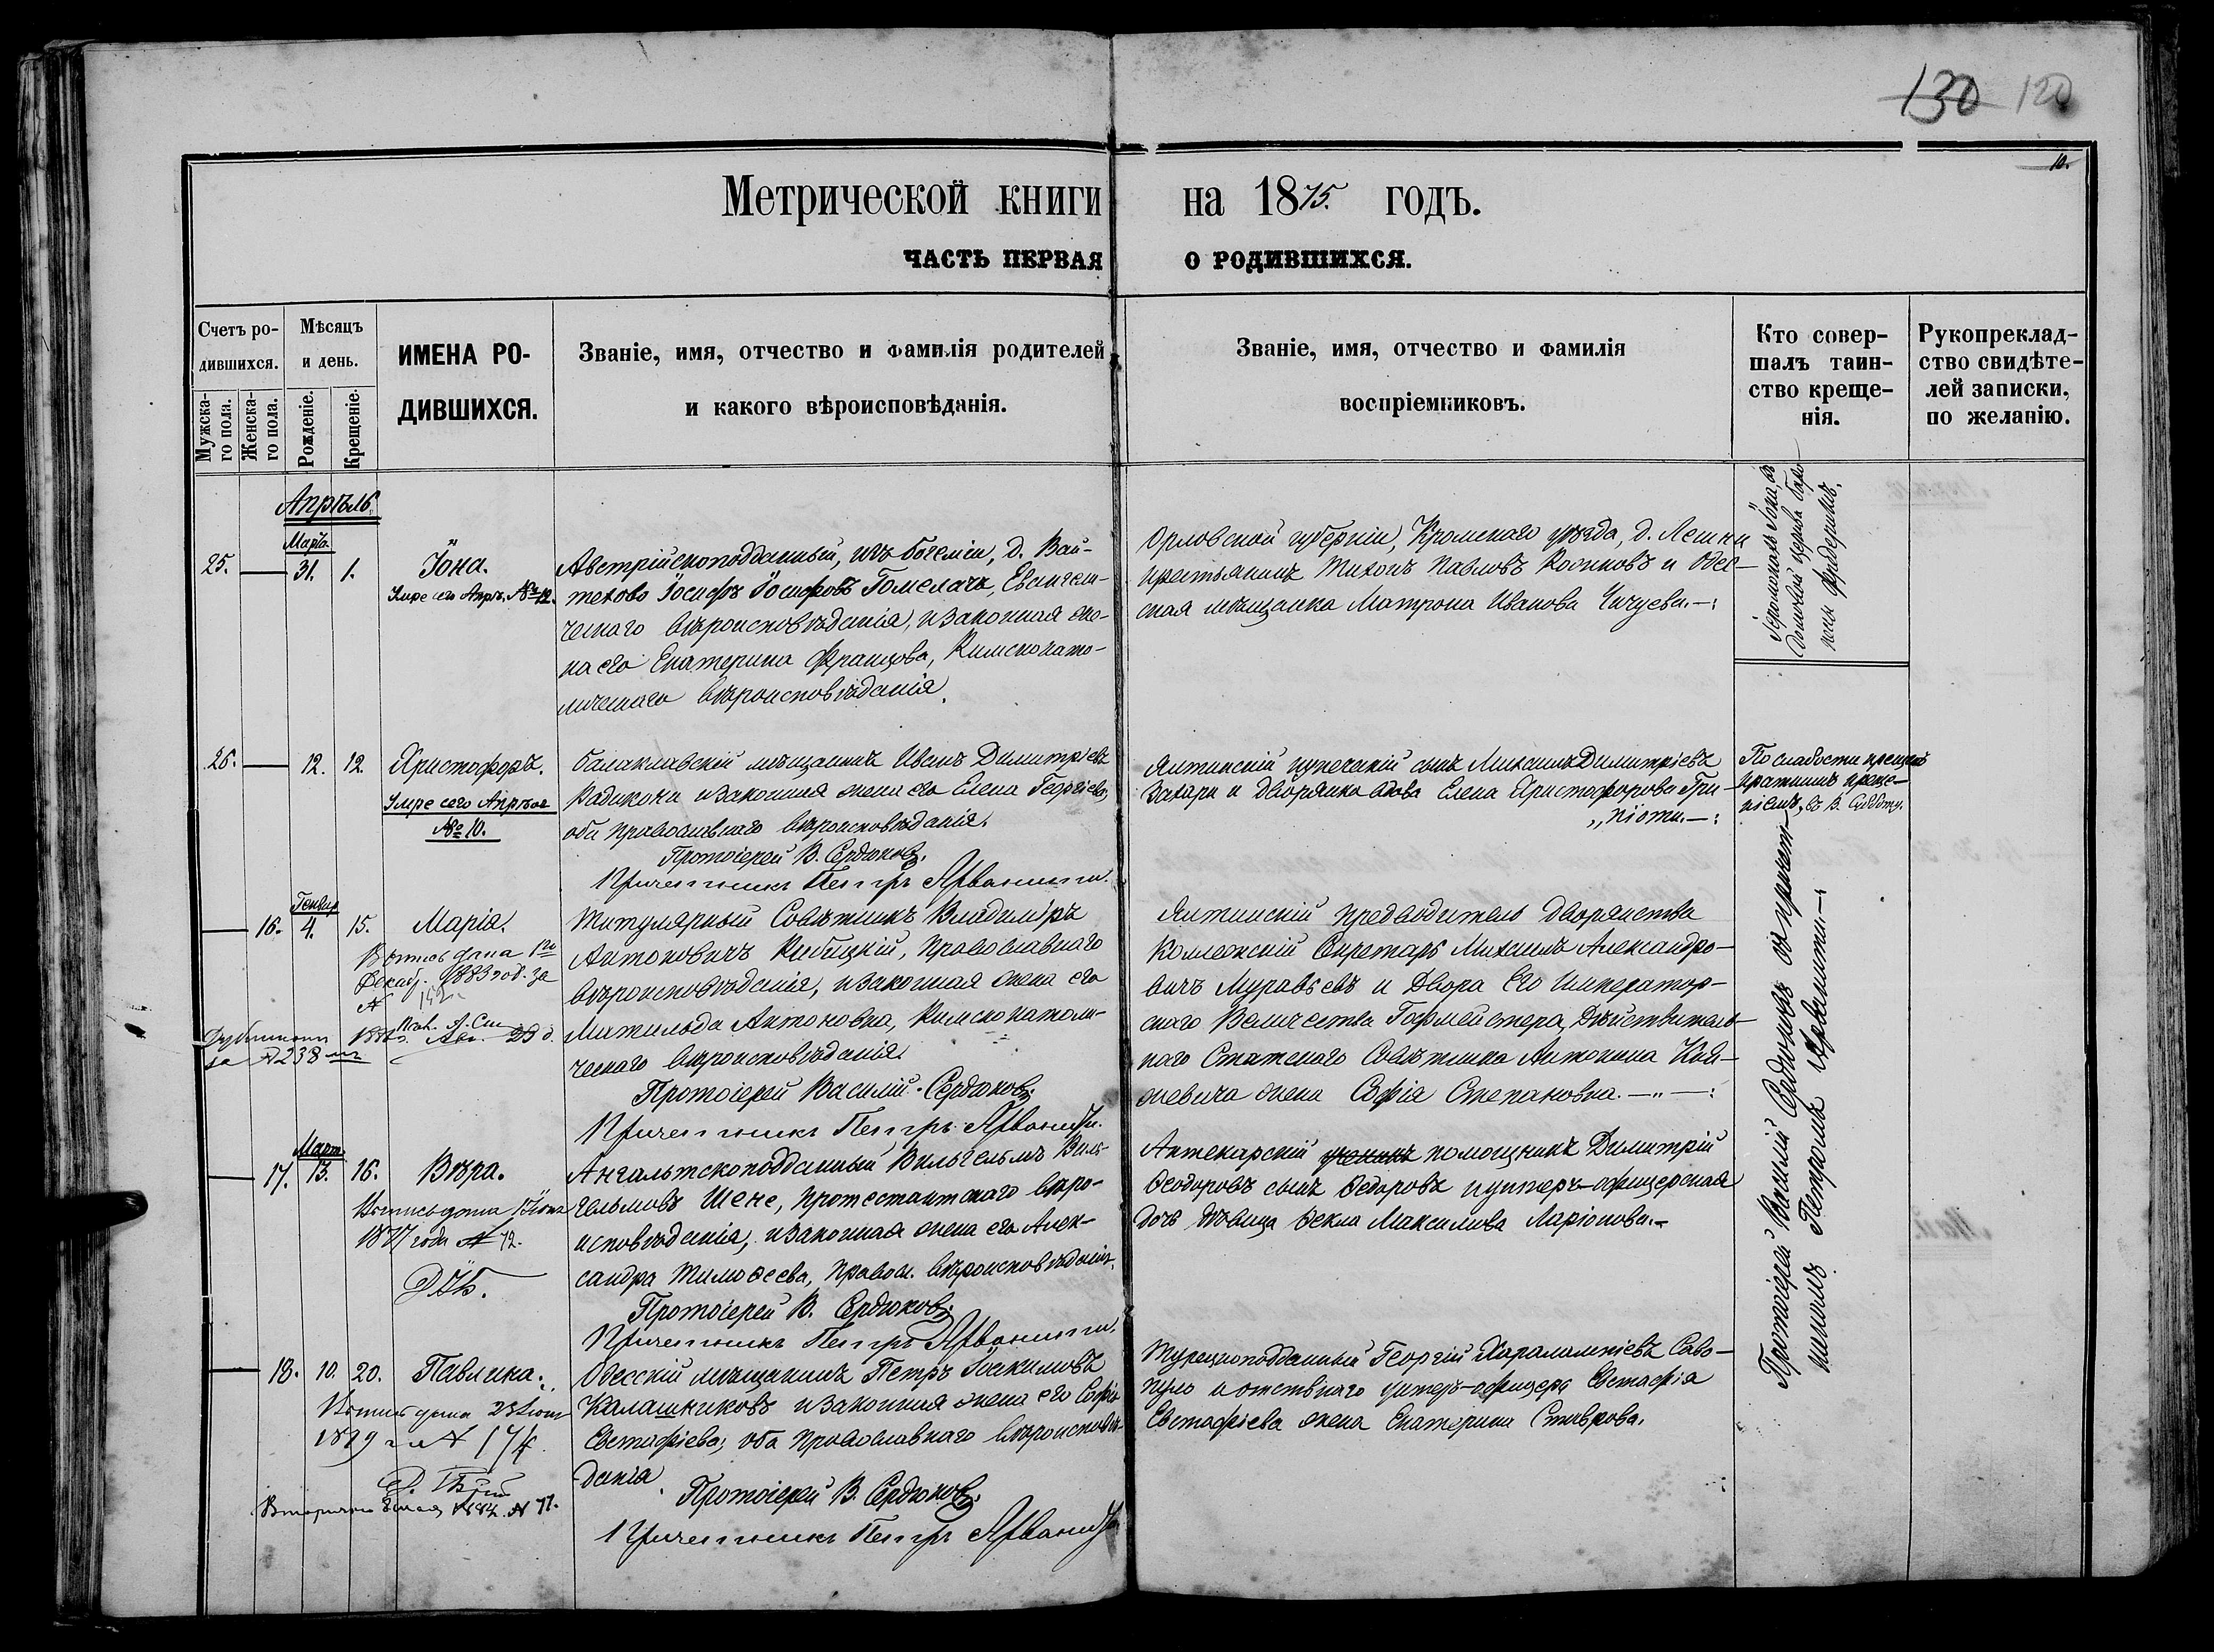 130 120
10.
Метрической книги на 1875. годъ.
ЧАСТЬ ПЕРВАЯ О РОДИВШИХСЯ.
Счетъ ро-
дившихся.
Мужска-
го пола.
Женска-
го пола.
Мѣсяцъ
и день.
Рожденіе.
Крещеніе.
ИМЕНА РО-
ДИВШИХСЯ.
Званіе, имя, отчество и фамилія родителей
и какого вѣроисповѣданія.
Званіе, имя, отчество и фамилія
воспріемниковъ.
Кто совер-
шалъ таин-
ство креще-
нія.
Рукопреклад-
ство свидѣте-
лей записки,
по желанію.
Апрѣль.
Март.
25. — 31. 1.
Іона.
Умре сего Апрѣ. № 12.
Австрійскоподданный, изъ Богеміи, д. Вай-
техово Іосифъ Іосифовъ Гомелачъ, Евангели-
ческаго вѣроисповѣданія, и законная же-
на его Екатерина Францова, Римскокато-
лическаго вѣроисповѣданія.
Орловской губерніи, Кромскаго уѣзда, д. Лешни
крестьянинъ Тихонъ Павловъ и Одес-
ская мѣщанка Матрона Иванова Чичуева.—:
Іеромонахъ Іона, въ
Домичной церкви баро-
несы Фредериксъ.
26. — 12. 12.
Христофоръ.
Умре сего Апрѣля
№ 10.
Балаклавскій мѣщанинъ Иванъ Димитріевъ
и законная жена его Елена Георгіева,
оба православнаго вѣроисповѣданія.
Протоіерей В. Сердюковъ.
Причетникъ Петръ Арванити.
Ялтинскій купеческій сынъ Михаилъ Димитріевъ
Захари и дворянка вдова Елена Христофорова Гри-
„піоти.—:
По слабости крещенъ
краткимъ креще-
ніемъ, въ В. Субботу.
Генвар
— 16. 4. 15.
Марія.
Выпись дана 1го
Декабр. 1883 год. за
№ 142.
за № 238
Титулярный Совѣтникъ Владиміръ
Антоновичъ Кибицкій, православнаго
вѣроисповѣданія, и законная жена его
Матильда Антоновна, Римскокатоли-
ческаго вѣроисповѣданія.
Протоіерей Василій Сердюковъ.
Причетникъ Петръ Арванити.
Ялтинскій предводитель дворянства
Коллежскій Секретарь Михаилъ Александро-
вичъ Муравьевъ и Двора Его Император-
скаго Величества Гофмейстера, Дѣйствитель-
наго Статскаго Совѣтника Антонина Кня-
жевича жена Софія Степановна.—„—:
Март
— 17. 13. 16.
Вѣра.
Выпись дана
1877 года № 72.
Ангальтскоподданный Вильгельмъ Виль-
гельмовъ Шене, протестантскаго вѣро-
исповѣданія, и законная жена его Алек-
сандра Тимоѳеева, правосл. вѣроисповѣданія.
Протоіерей В. Сердюковъ.
Причетникъ Петръ Арванити.
Аптекарскій ученикъ помощникъ Димитрій
Ѳеодоровъ сынъ Ѳедоровъ и унтеръ-офицерская
дочь дѣвица Ѳекла Максимова Ларіонова.—
— 18. 10. 20.
Павлина.
Выпись дана
1879 г. № 174.
Вторично 1882. № 77.
Одесскій мѣщанинъ Петръ Іоакимовъ
Калашниковъ и законная жена его Софія
Евстафіева, оба православнаго вѣроисповѣ-
данія.
Протоіерей В. Сердюковъ.
Причетникъ Петръ Арванити
Турецкоподданный Георгій Харалампіевъ Саво-
пуло и отставнаго унтеръ-офицера Евстафія
Евстафіева жена Екатерина Ставрова.
Протоіерей Василій Сердюковъ съ причет-
никомъ Петромъ Арванити.—: